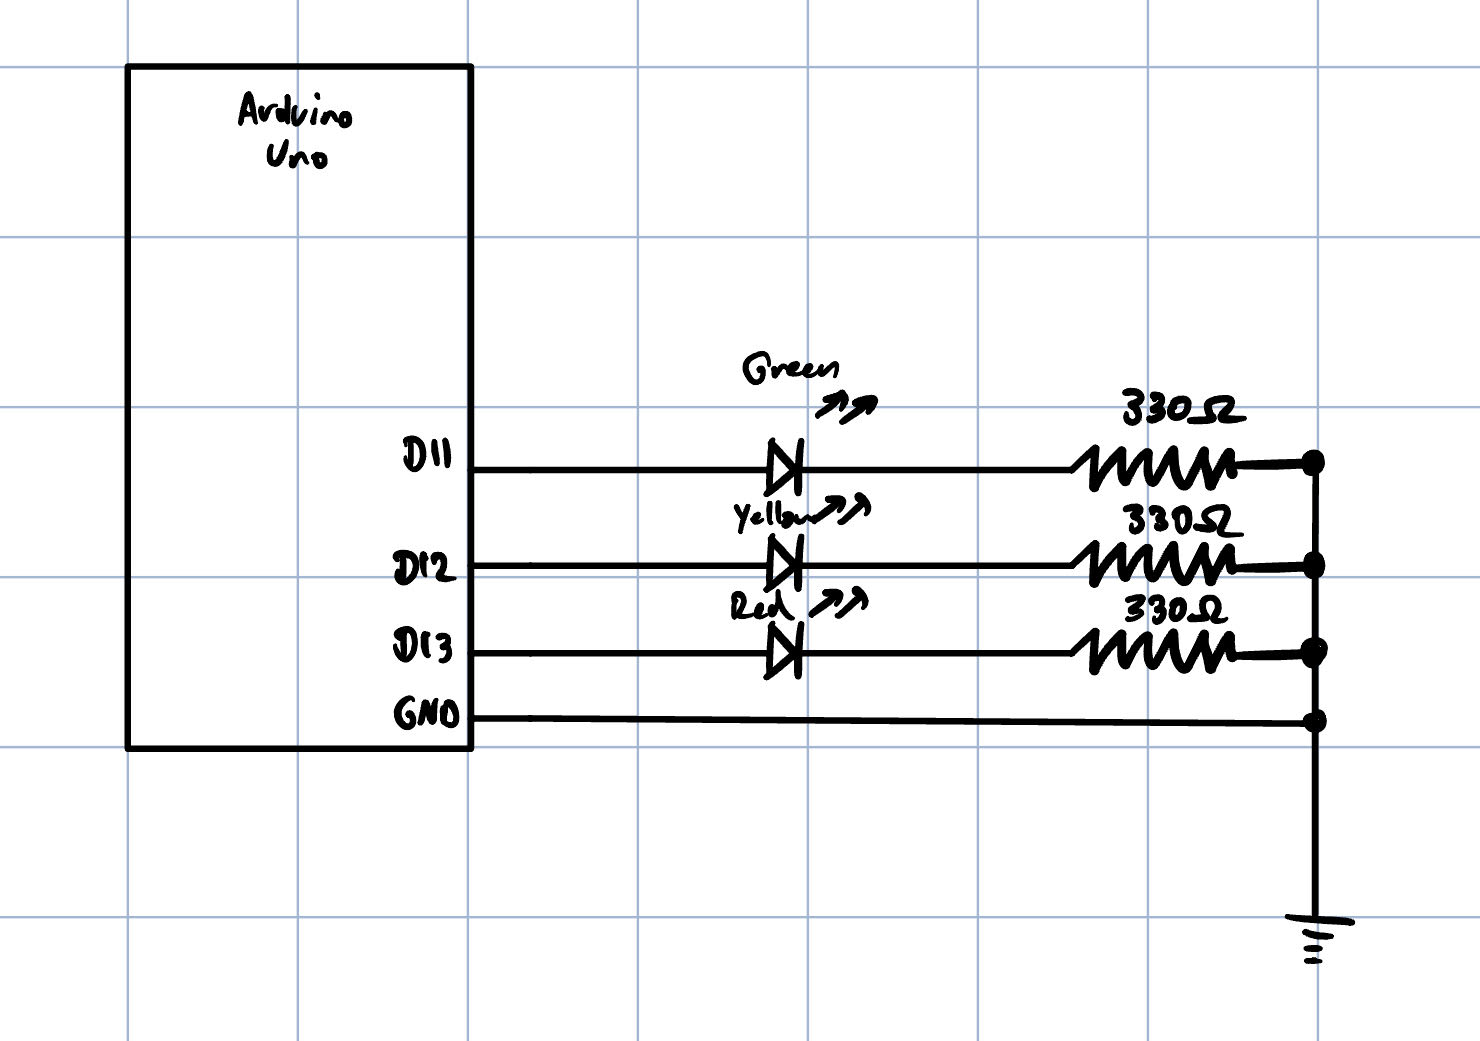 Arduino
Uno
Green
330Ω
D11
Yellow
330Ω
D12
Red
330Ω
D13
GND